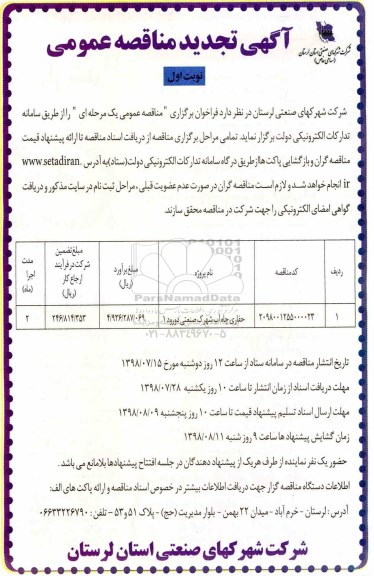 آگهی تجدید مناقصه عمومی
شرکت شهرکهای صنعتی استان لرستان
(سهامی خاص)
نوبت اول
شرکت شهرکهای صنعتی لرستان در نظر دارد فراخوان برگزاری "مناقصه عمومی یک مرحله ای" را از طریق سامانه
تدارکات الکترونیکی دولت برگزار نماید. تمامی مراحل برگزاری مناقصه از دریافت اسناد مناقصه تا ارائه پیشنهاد قیمت
مناقصه گران و بازگشایی پاکت ها از طریق درگاه سامانه تدارکات الکترونیکی دولت (ستاد) به آدرس www.setadiran.
ir انجام خواهد شد و لازم است مناقصه گران در صورت عدم عضویت قبلی، مراحل ثبت نام در سایت مذکور و دریافت
گواهی امضای الکترونیکی را جهت شرکت در مناقصه محقق سازند.
ردیف کد مناقصه نام پروژه مبلغ برآورد (ریال) مبلغ تضمین شرکت در فرآیند ارجاع کار (ریال) مدت اجرا (ماه)
۱ ۲۰۹۸۰۰۱۲۵۵۰۰۰۰۲۳ حفاری چاه آب شهرک صنعتی دورود ۱ ۴/۹۳۶/۲۸۷/۰۶۹ ۲۴۶/۸۱۴/۳۵۳ ۲
ParsNamadData
۰۲۱-۸۸۳۴۹۶۷۰-۵
تاریخ انتشار مناقصه در سامانه ستاد از ساعت ۱۲ روز دوشنبه مورخ ۱۳۹۸/۰۷/۱۵
مهلت دریافت اسناد از زمان انتشار تا ساعت ۱۰ روز یکشنبه ۱۳۹۸/۰۷/۲۸
مهلت ارسال اسناد تسلیم پیشنهاد قیمت تا ساعت ۱۰ روز پنجشنبه ۱۳۹۸/۰۸/۰۹
زمان گشایش پیشنهاد ها ساعت ۹ روز شنبه ۱۳۹۸/۰۸/۱۱
حضور یک نفر نماینده از طرف هریک از پیشنهاد دهندگان در جلسه افتتاح پیشنهادها بلامانع می باشد.
اطلاعات دستگاه مناقصه گزار جهت دریافت اطلاعات بیشتر در خصوص اسناد مناقصه و ارائه پاکت های الف:
آدرس: لرستان - خرم آباد - میدان ۲۲ بهمن - بلوار مدیریت (حج) - پلاک ۵۱ و ۵۳ - تلفن: ۰۶۶۳۳۲۲۶۷۹۰
شرکت شهرکهای صنعتی استان لرستان